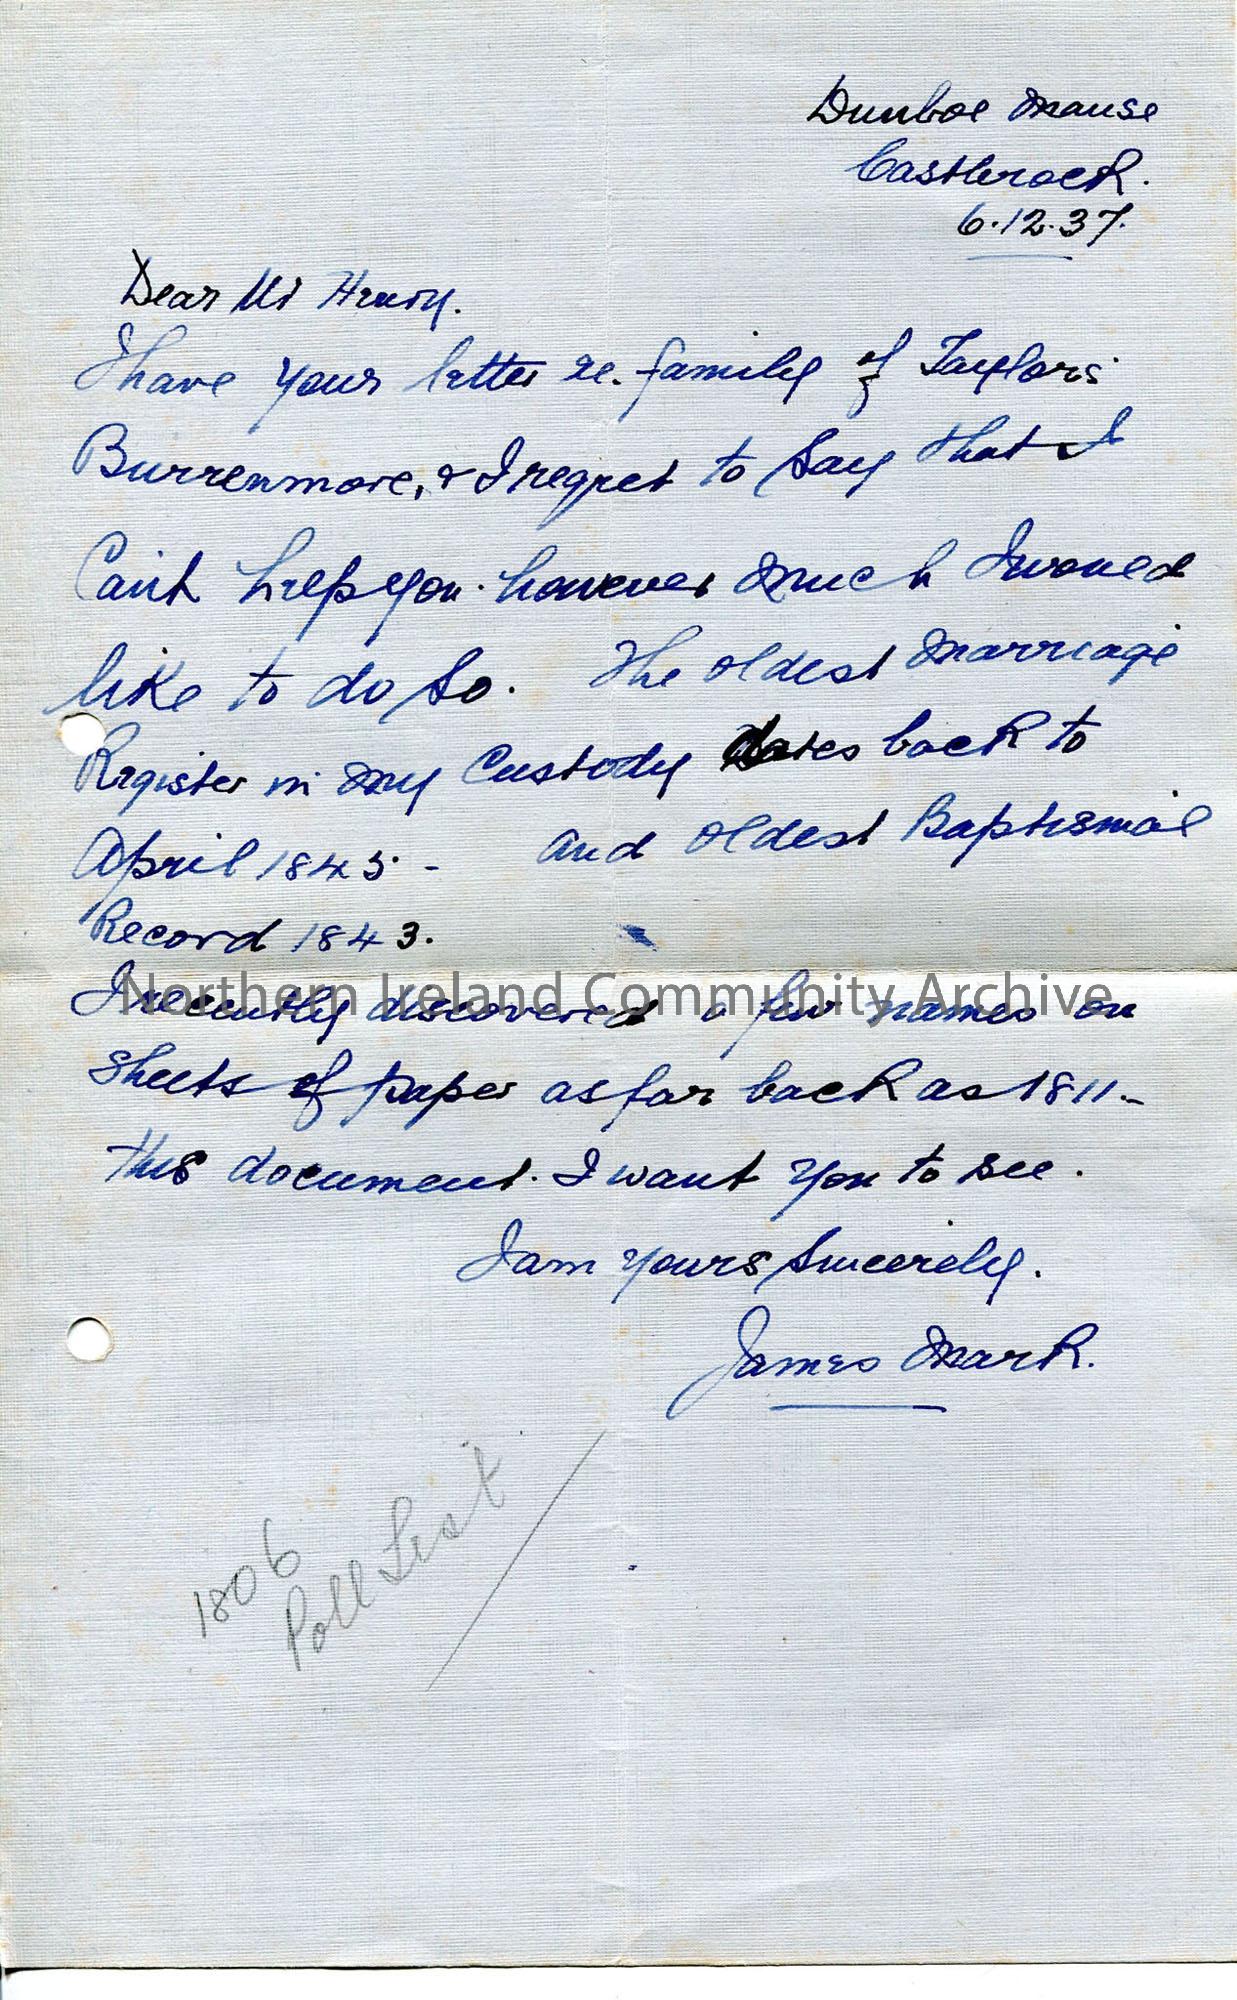 Dunboe Manse
Castlerock.
6.12.37.
Dear Mr Henry.
I have your letter re. family of Taylors
Burrenmore, & I regret to say that I
Can't help you. however much I would
like to do so. The oldest Marriage
Register in my Custody dates back to
April 1845 - and oldest Baptismal
Record 1843.
I recently discovered a few names on
Sheets of paper as far back as 1811 -
this document. I want you to see.
I am yours Sincerely.
James Mark.
1806
Poll List
Northern Ireland Community Archive